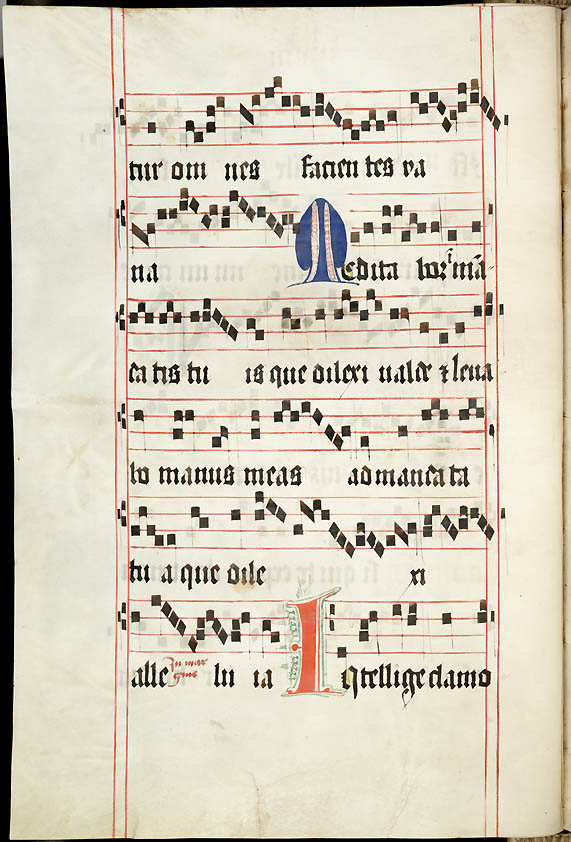 tur om nes facien tes va
na Medita bor ī mā
da tis tu is que dilexi valde ⁊ leva
bo manus meas ad manda ta
tu a que dile xi
alle In mar gine lu ia Intellige clamo